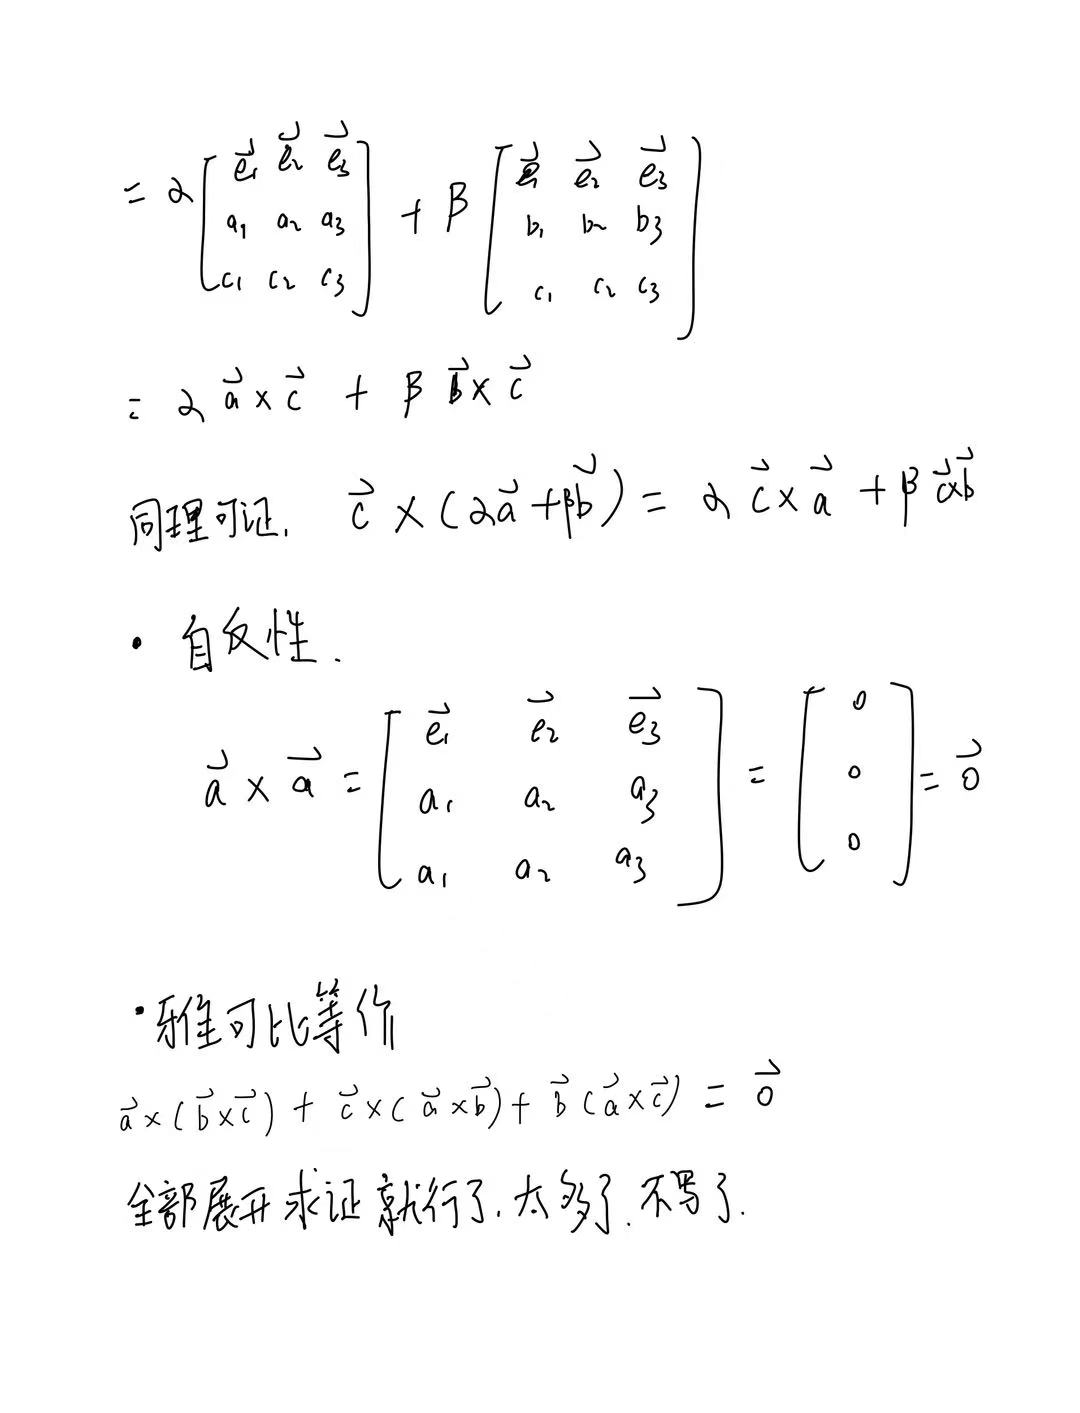 = α [ e⃗₁ e⃗₂ e⃗₃
a₁ a₂ a₃
c₁ c₂ c₃ ] + β [ e⃗₁ e⃗₂ e⃗₃
b₁ b₂ b₃
c₁ c₂ c₃ ]
= α a⃗ × c⃗ + β b⃗ × c⃗
同理可证, c⃗ × (α a⃗ + β b⃗) = α c⃗ × a⃗ + β c⃗ × b⃗
· 自反性.
a⃗ × a⃗ = [ e⃗₁ e⃗₂ e⃗₃
a₁ a₂ a₃
a₁ a₂ a₃ ] = [ 0
0
0 ] = 0⃗
· 雅可比等价
a⃗ × (b⃗ × c⃗) + c⃗ × (a⃗ × b⃗) + b⃗ (a⃗ × c⃗) = 0⃗
全部展开求证就行了, 太多了, 不写了.